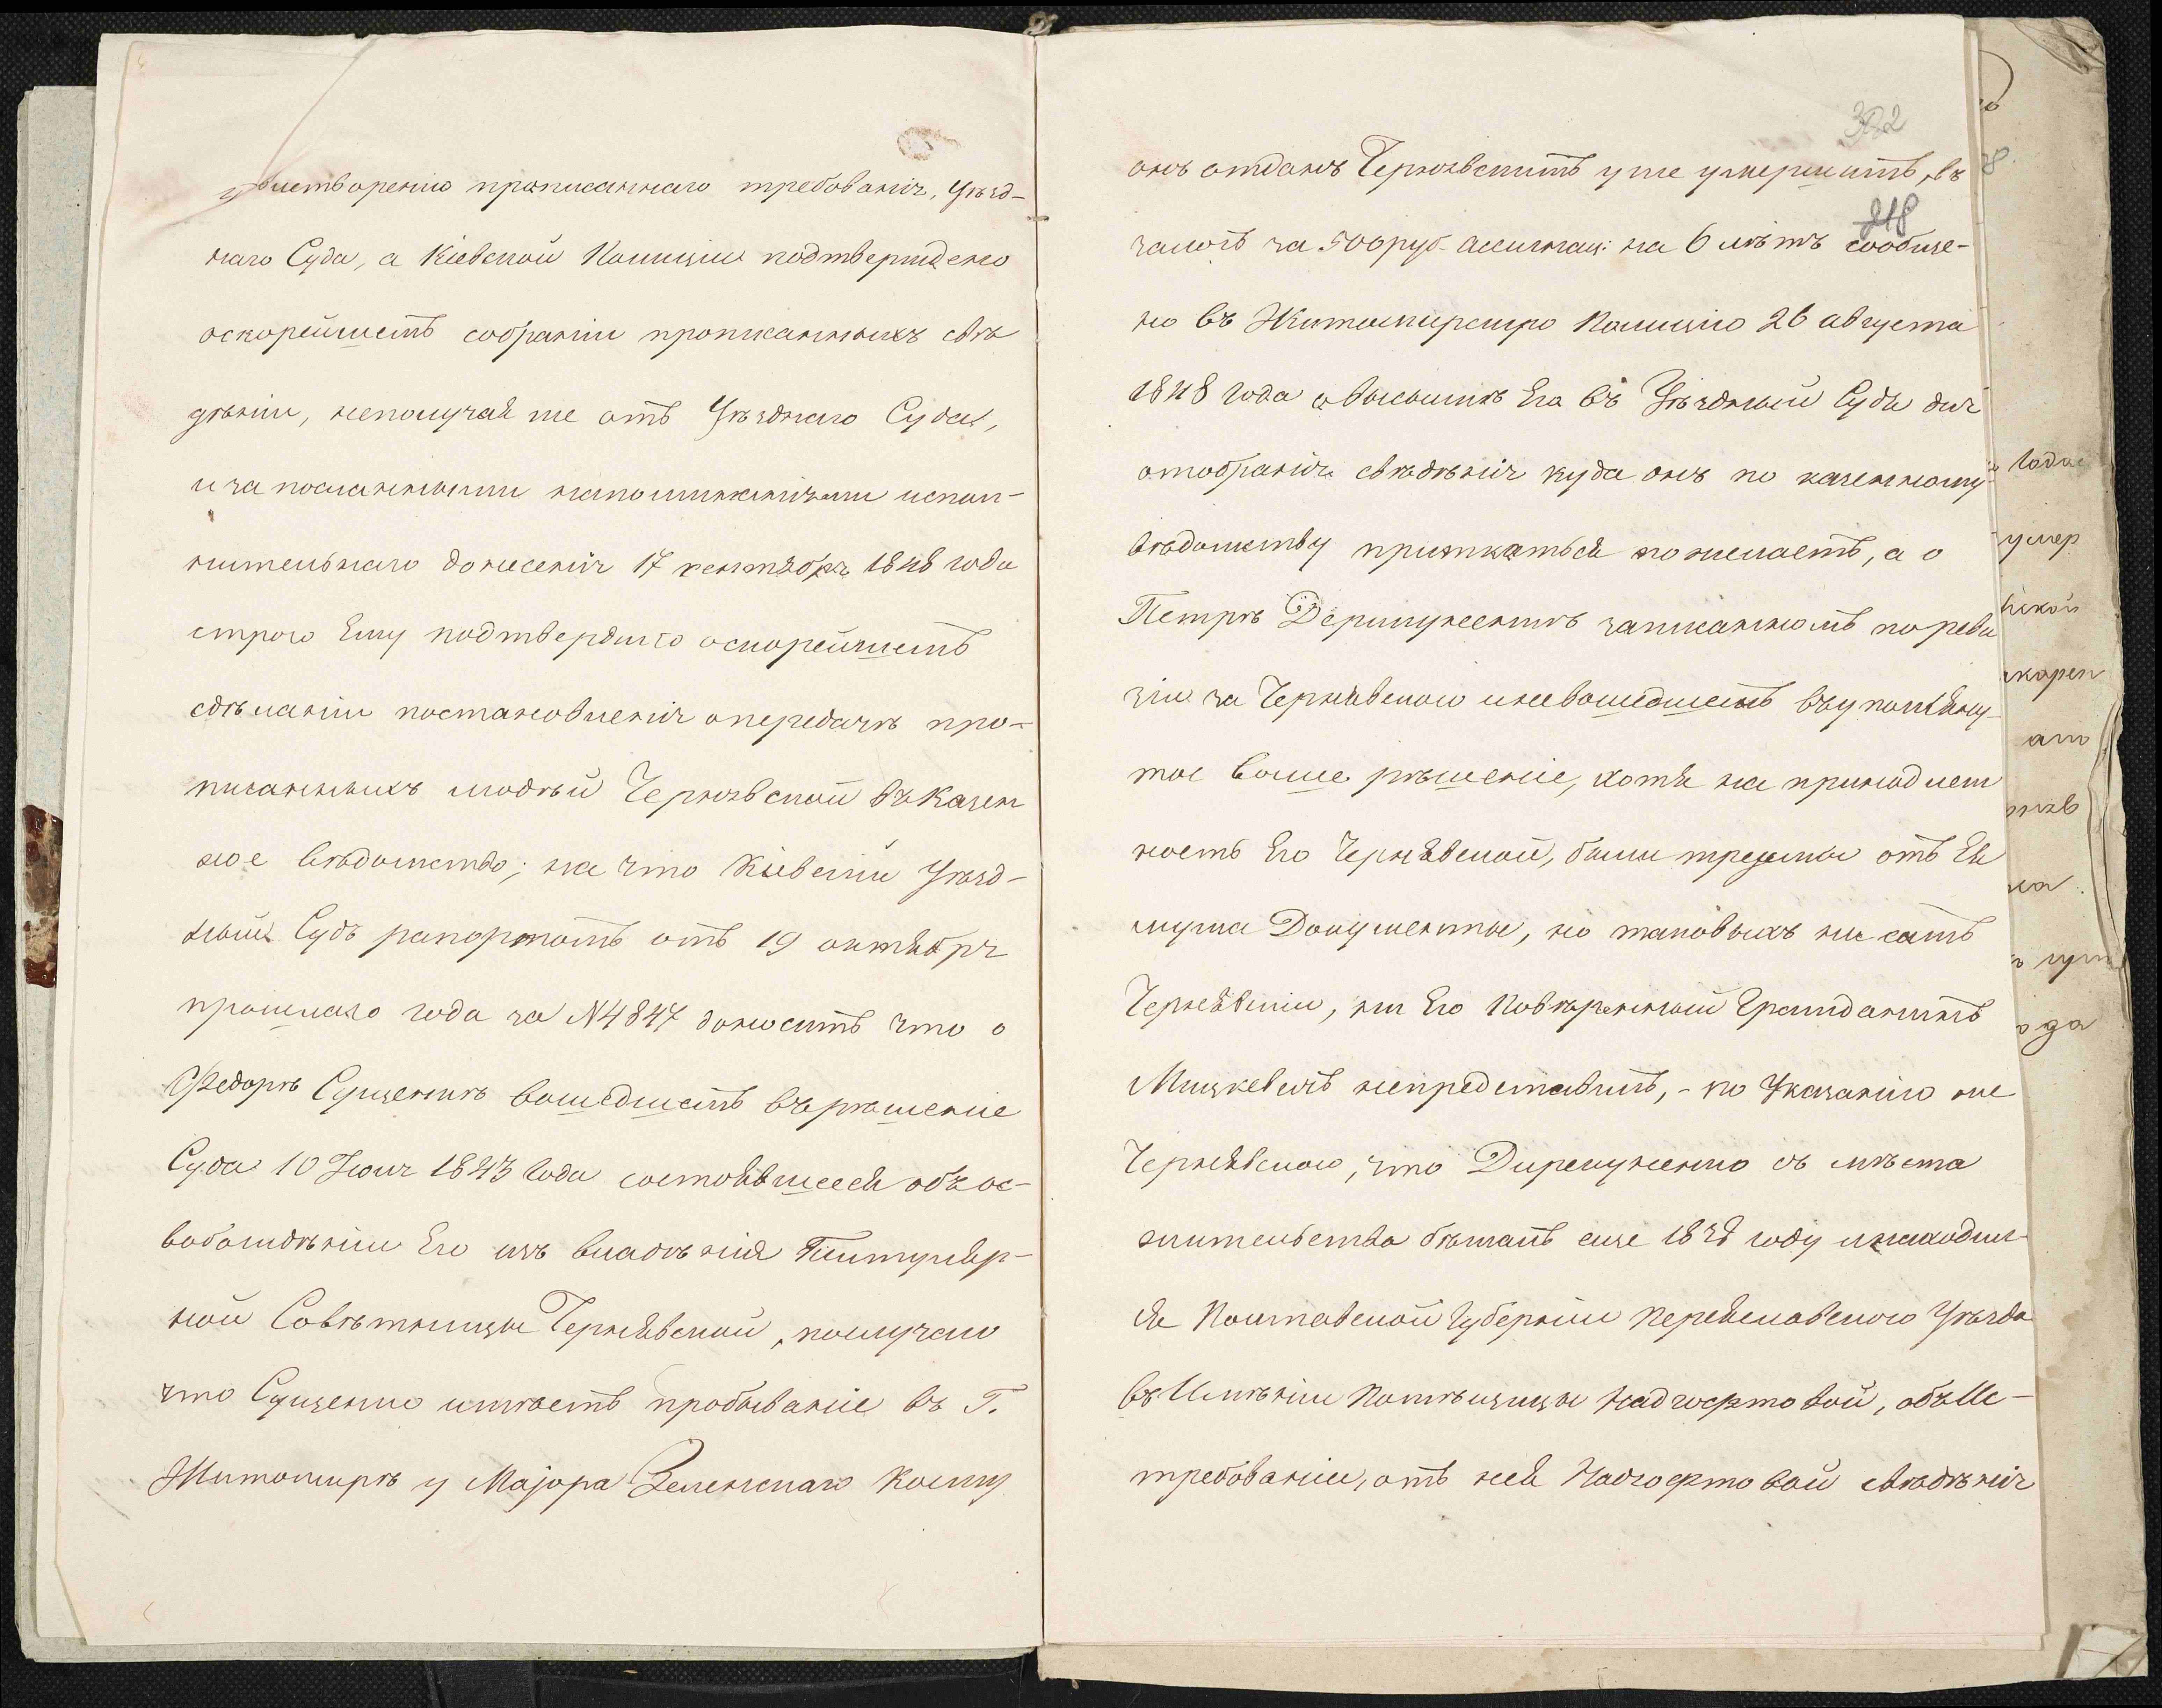 удовлетворению прописаннаго требованія, Уѣзд-
наго Суда, а Кіевской Полиціи подтверждено
оскорейшемъ собраніи прописанныхъ свѣ
дѣніи, неполучая же отъ Уѣзднаго Суда,
и за посланными напоминаніями испол-
нительнаго донесенія 17 сентября 1848 года
строго Ему подтвердило оскорейшемъ
сдѣланіи постановленія опередачѣ про-
писанныхъ людей Чернявской въ Казен
ное вѣдомство; на что Кіевскій Уѣзд-
ный Судъ рапортомъ отъ 19 октября
прошлаго года за N 4847 доноситъ что о
Федорѣ Сущенкѣ вошедшемъ върѣшеніе
Суда 10 Іюля 1843 года состоявшееся объ ос-
вобожденіи Его изъ владѣнія Титуляр-
ной Совѣтницы Чернявской, получаю
что Сущенко имѣетъ пробываніе въ Г.
Житомирѣ у Маіора Зеленскаго Кому
382
онъ отданъ Чернявскимъ уже умершимъ, въ
818
залогъ за 500 руб. ассигнац: на 6 лѣтъ сообще-
но въ Житомирскую Полицію 26 августа
1848 года овысылкѣ Его въ Уѣздный Судъ для
отобранія свѣдѣнія куда онъ по казенному
вѣдомству приписаться пожелаетъ, а о
Петрѣ записанномъ по реви
зіи за Чернявскою иневошедшемъ въупомяну-
тое выше рѣшеніе, хотя на принадлеж
ность Его Чернявской, были требуемы отъ Ея
мужа Документы, но таковыхъ ни самъ
Чернявскій, ни Его Повѣренный Гражданинъ
Мицкевичъ непредставилъ, - по Указанію же
Чернявскою, что съ мѣста
жительства бѣжалъ еще году инаходил-
ся Полтавской Губерніи Переяславскаго Уѣзда
въ Имѣніи Помѣщицы Надгофтовой, объ Ис-
требованіи, отъ нея Надгофтовой свѣдѣнія